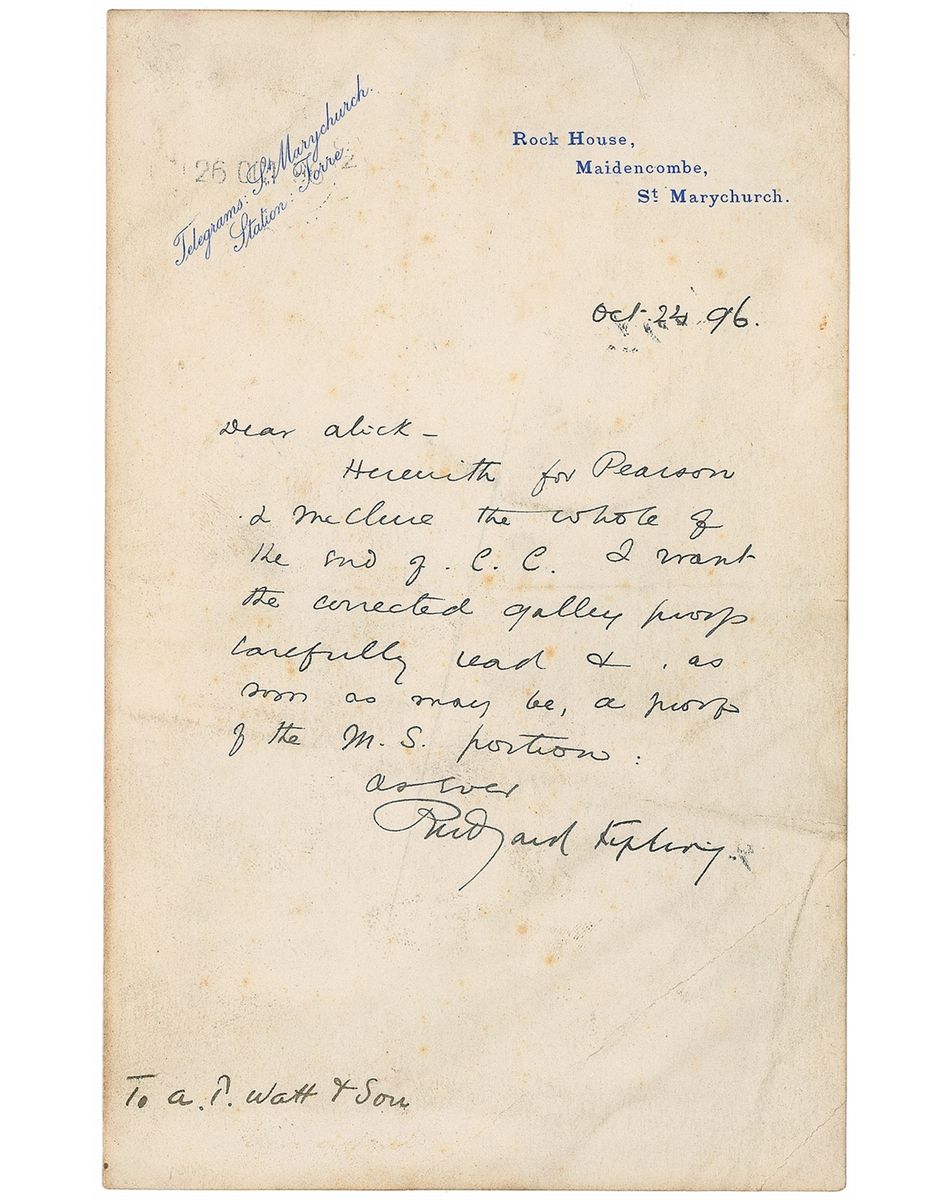 Telegrams: St. Marychurch.
Station: Torre.
26 OC
Rock House,
Maidencombe,
St. Marychurch.
Oct. 24. 96.
Dear Alick –
Herewith for Pearson
& McClure the whole of
the end of C. C. I want
the corrected galley proofs
carefully read & , as
soon as may be, a proof
of the M. S. portion.
As ever
Rudyard Kipling.
To A. P. Watt & Son